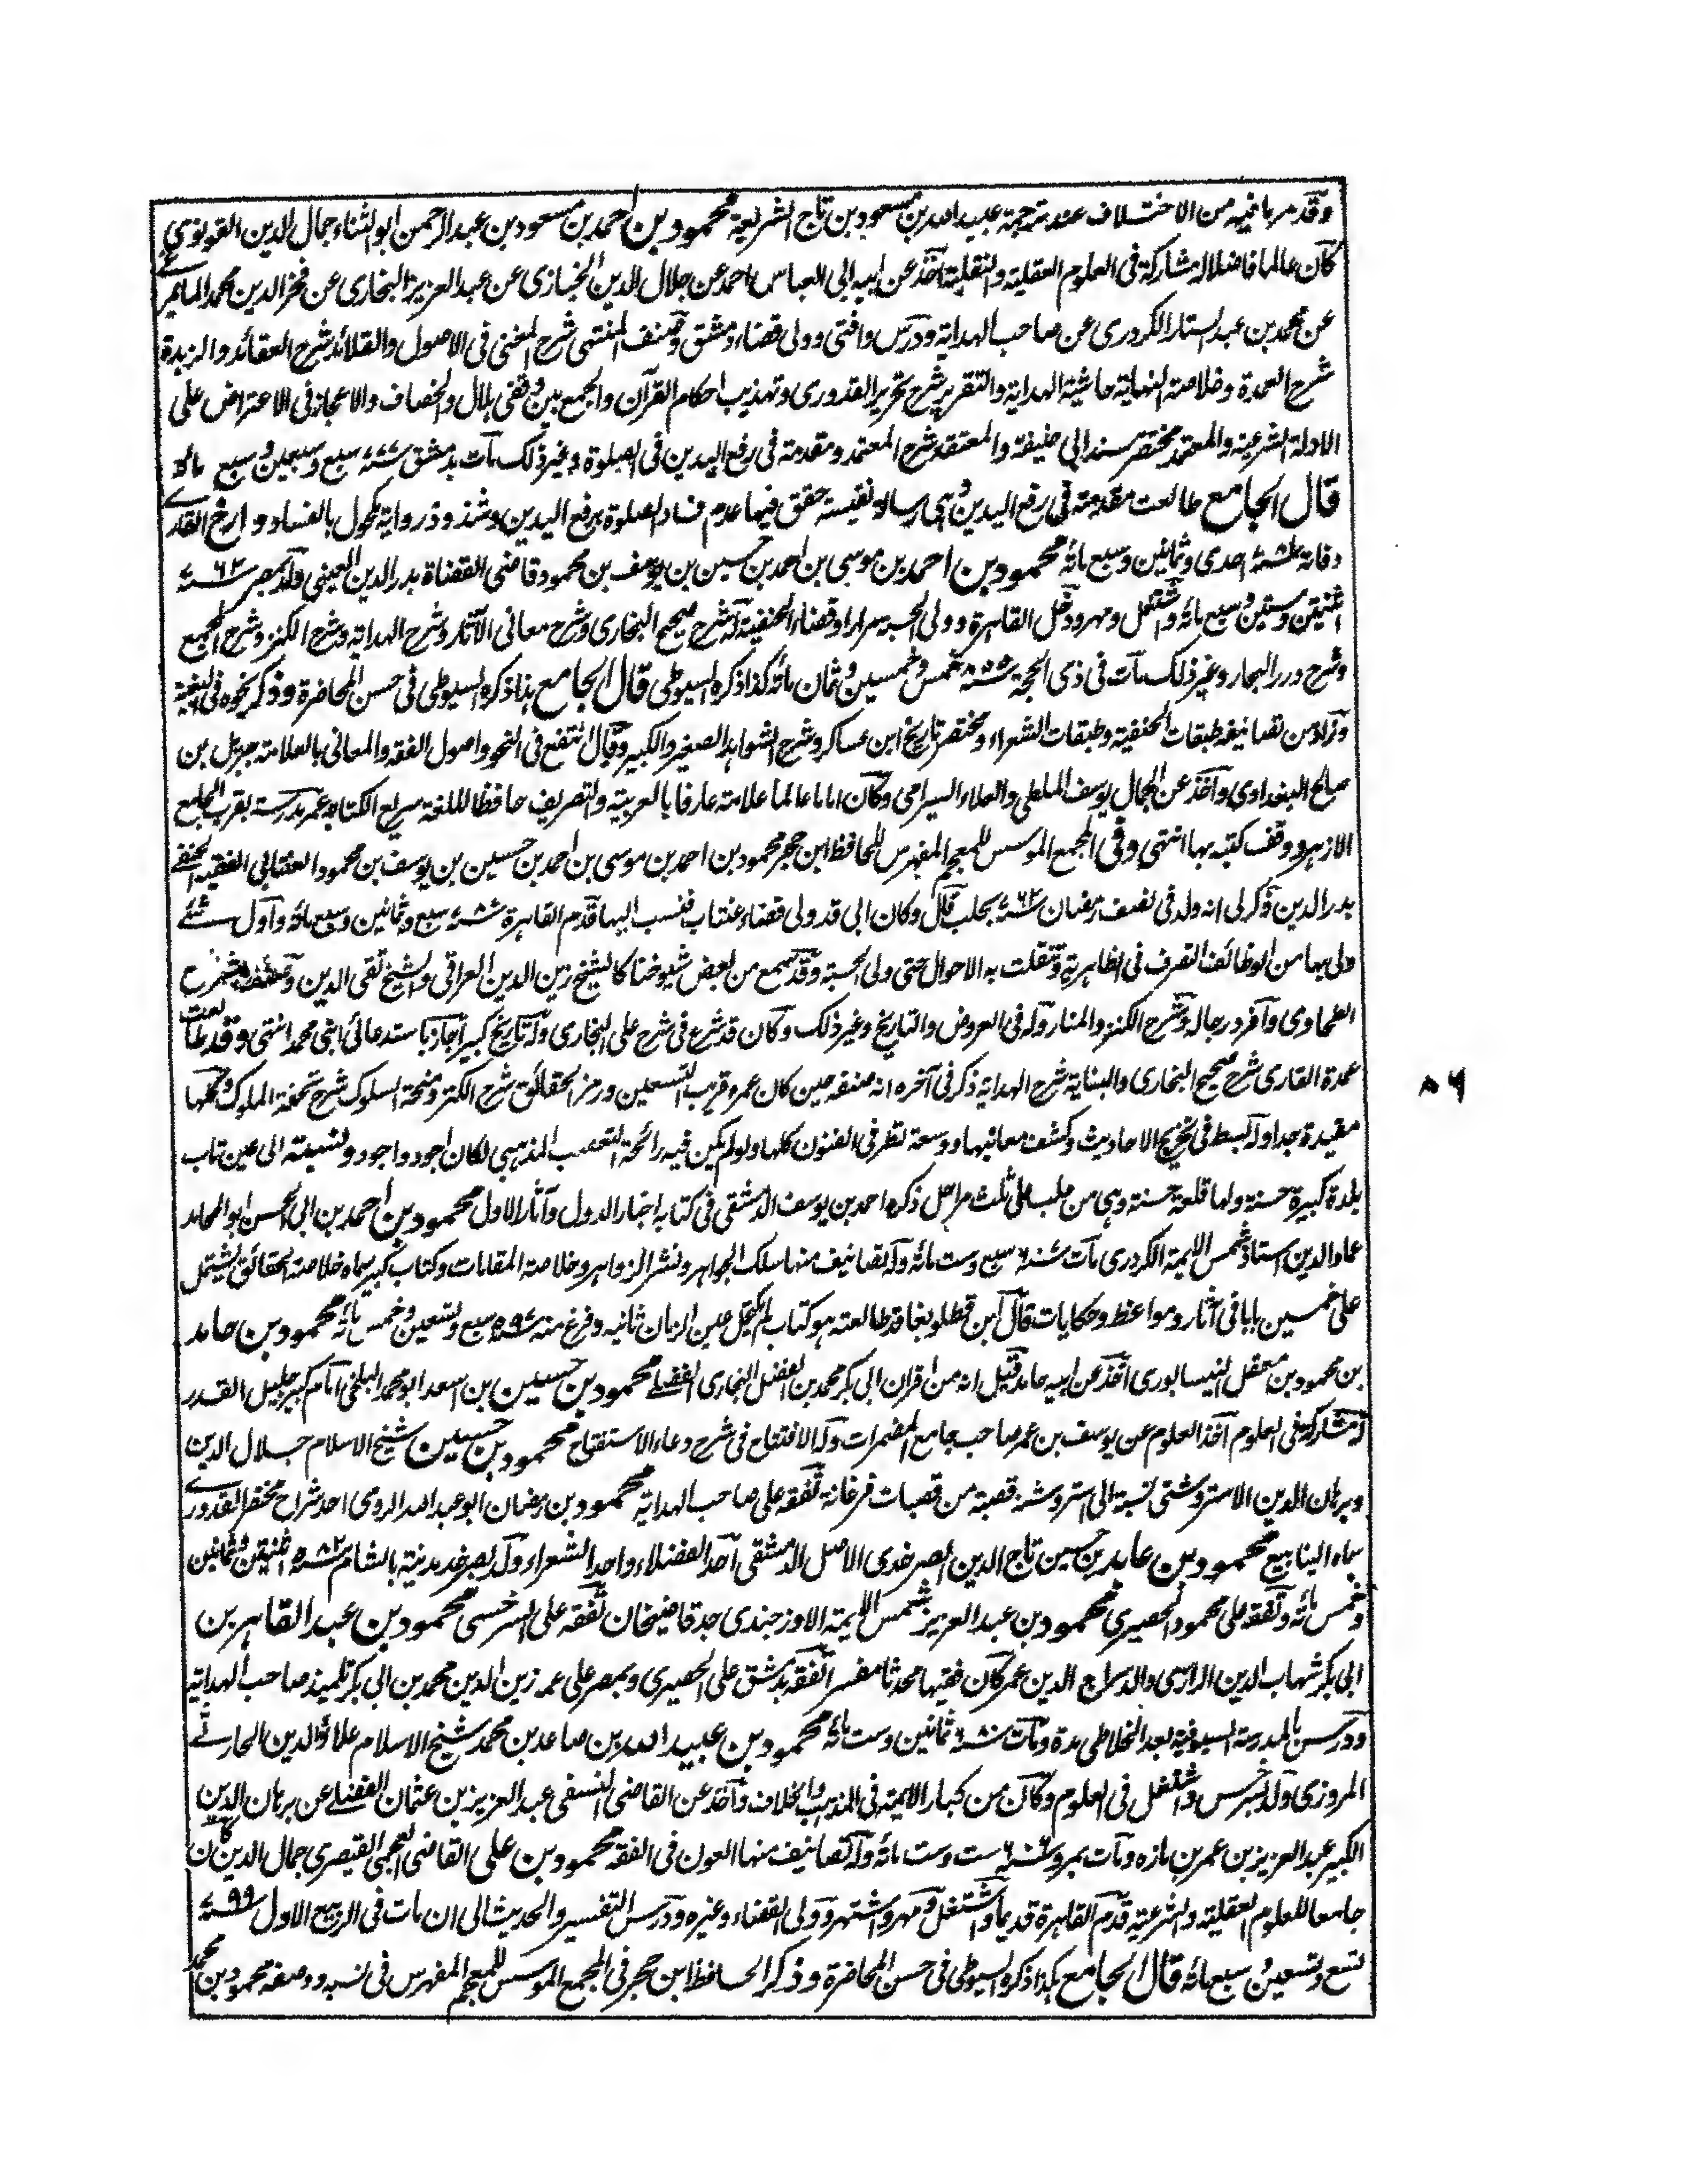 وقد مر ما فيه من الاختلاف عند ترجمة عبيد الله بن مسعود بن تاج الشريعة محمود بن احمد بن مسعود بن عبد الرحمن ابو الثناء جمال الدين القونوي
كان عالما فاضلا له مشاركة فى العلوم العقلية والنقلية اخذ عن ابيه ابى العباس احمد عن جلال الدين الخبازى عن عبد العزيز البخارى عن فخر الدين محمد المايمرغى
عن محمد بن عبد الستار الكردرى عن صاحب الهداية ودرس وافتى وولى قضاء دمشق وصنف المنتهى شرح المغنى فى الاصول والقلائد شرح العقائد والزبدة
شرح العمدة وخلاصة النهاية حاشية الهداية والتقرير شرح تحرير القدورى وتهذيب احكام القرآن والجمع بين وقفى هلال والخصاف والاعجاز فى الاعتراض على
الادلة الشرعية والمعتمد مختصر مسند ابى حنيفة والمعتقد شرح المعتمد ومقدمة فى رفع اليدين فى الصلوة وغير ذلك مات بدمشق ٧٧٧ سبع وسبعين وسبع مائة
قال الجامع طالعت مقدمته فى رفع اليدين وهى رسالة نفيسة حقق فيها عدم فساد الصلوة برفع اليدين وشذوذ رواية مكحول بالفساد وارخ القارى
وفاته ٧٨١ احدى وثمانين وسبع مائة محمود بن احمد بن موسى بن احمد بن حسين بن يوسف بن محمود قاضى القضاة بدر الدين العينى ولد بمصر ٧٦٢
اثنتين وستين وسبع مائة واشتغل ومهر ودخل القاهرة وولى الحسبة مرارا وقضاء الحنفية له شرح صحيح البخارى وشرح معانى الآثار وشرح الهداية وشرح الكنز وشرح المجمع
وشرح درر البحار وغير ذلك مات فى ذى الحجة ٨٥٥ خمس وخمسين وثمان مائة كذا ذكره السيوطى قال الجامع هذا ذكره السيوطى فى حسن المحاضرة وذكر نحوه فى البغية
وزاد من تصانيفه طبقات الحنفية وطبقات الشعراء ومختصر تاريخ ابن عساكر وشرح الشواهد الصغير والكبير وقال انتفع فى النحو واصول الفقه والمعانى بالعلامة جبريل بن
صالح البغدادى واخذ عن الجمال يوسف الملطى والعلاء السيرامى وكان اماما عالما علامة عارفا بالعربية والتصريف حافظا للغة سريع الكتابة عمر مدرسة بقرب الجامع
الازهر ووقف كتبه بها انتهى وفى المجمع الموسس للمعجم المفهرس للحافظ ابن حجر محمود بن احمد بن موسى بن احمد بن حسين بن يوسف بن محمود العنتابى الفقيه الحنفى
بدر الدين ذكر لى انه ولد فى نصف رمضان ٧٦٢ بحلب قال وكان ابى قد ولى قضاء عنتاب فنسب اليها قدم القاهرة ٧٨٨ سبع وثمانين وسبع مائة واول شئ
ولى بها من الوظائف التصرف فى الظاهرية وتنقلت به الاحوال حتى ولى الحسبة وقد سمع من بعض شيوخنا كالشيخ زين الدين العراقى والشيخ تقى الدين وصنف شرح
الطحاوى وافرد رجاله وشرح الكنز والمنار وله فى العروض والتاريخ وغير ذلك وكان قد شرع فى شرح على البخارى وله تاريخ كبير اجاز باستدعائى ابنى محمد انتهى وقد طالعت
عمدة القارى شرح صحيح البخارى والبناية شرح الهداية ذكر فى آخره انه صنفه حين كان عمره قريب التسعين ورمز الحقائق شرح الكنز ومنحة السلوك شرح تحفة الملوك وكلها
مفيدة جدا وله بسط فى تخريج الاحاديث وكشف معانيها ووسعة نظر فى الفنون كلها ولو لم يكن فيه رائحة التعصب المذهبى لكان اجود واجود ونسبته الى عين تاب
بلدة كبيرة حسنة ولها قلعة حسنة وهى من حلب على ثلث مراحل ذكره احمد بن يوسف الدمشقى فى كتابه اخبار الدول وآثار الاول محمود بن احمد بن ابى الحسن ابو المحامد
عماد الدين استاذ شمس الايمة الكردرى مات ٦٠٧ سبع وست مائة وله تصانيف منها سلك الجواهر ونشر الزواهر وخلاصة المقامات وكتاب كبير سماه خلاصة الحقائق يشتمل
على خمسين بابا فى آثار ومواعظ وحكايات قال ابن قطلوبغا قد طالعته هو كتاب لم تكتحل عين الزمان ثانيه وفرغ منه ٥٩٧ سبع وتسعين وخمس مائة محمود بن حامد
بن محمود بن معقل النيسابورى اخذ عن ابيه حامد قيل انه من اقران ابى بكر محمد بن الفضل البخارى الفضلى محمود بن حسين بن اسعد ابو محمد البلخى امام كبير جليل القدر
له مشاركة فى العلوم اخذ العلوم عن يوسف بن عمر صاحب جامع المضمرات وله الافتتاح فى شرح دعاء الاستفتاح محمود بن حسين شيخ الاسلام جلال الدين
وبرهان الدين الاستروشنى نسبة الى استروشنة قصبة من قصبات فرغانة تفقه على صاحب الهداية محمود بن رمضان ابو عبد الله الرومى احد شراح مختصر القدورى
سماه الينابيع محمود بن عابد بن حسين تاج الدين الصرخدى الاصل الدمشقى احد الفضلاء واحد الشعراء ولد بصرخد مدينة بالشام ٥٨٢ اثنتين وثمانين
وخمس مائة وتفقه على محمود الحصيرى محمود بن عبد العزيز شمس الايمة الاوزجندى جد قاضيخان تفقه على السرخسى محمود بن عبد القاهر بن
ابى بكر شهاب الدين الرازى والد سراج الدين عمر كان فقيها محدثا مفسرا تفقه بدمشق على الحصيرى وبمصر على عمه زين الدين محمد بن ابى بكر تلميذ صاحب الهداية
ودرس بالمدرسة السيوفية بعد الخلاطى مدة ومات ٦٨٠ ثمانين وست مائة محمود بن عبيد الله بن صاعد بن محمد شيخ الاسلام علاؤ الدين الحارثى
المروزى ولد بسرخس واشتغل فى العلوم وكان من كبار الايمة فى المذهب والخلاف واخذ عن القاضى النسفى عبد العزيز بن عثمان الفضلى عن برهان الدين
الكبير عبد العزيز بن عمر بن مازه ومات بمرو ٦٠٦ ست وست مائة وله تصانيف منها العون فى الفقه محمود بن على القاضى العجمى القيصرى جمال الدين كان
جامعا للعلوم العقلية والشرعية قدم القاهرة قديما واشتغل ومهر واشتهر وولى القضاء وغيره ودرس التفسير والحديث الى ان مات فى الربيع الاول ٧٩٩
تسع وتسعين وسبعمائة قال الجامع هكذا ذكره السيوطى فى حسن المحاضرة وذكر الحافظ ابن حجر فى المجمع الموسس للمعجم المفهرس فى نسبه ووصفه محمود بن محمد
٨٦